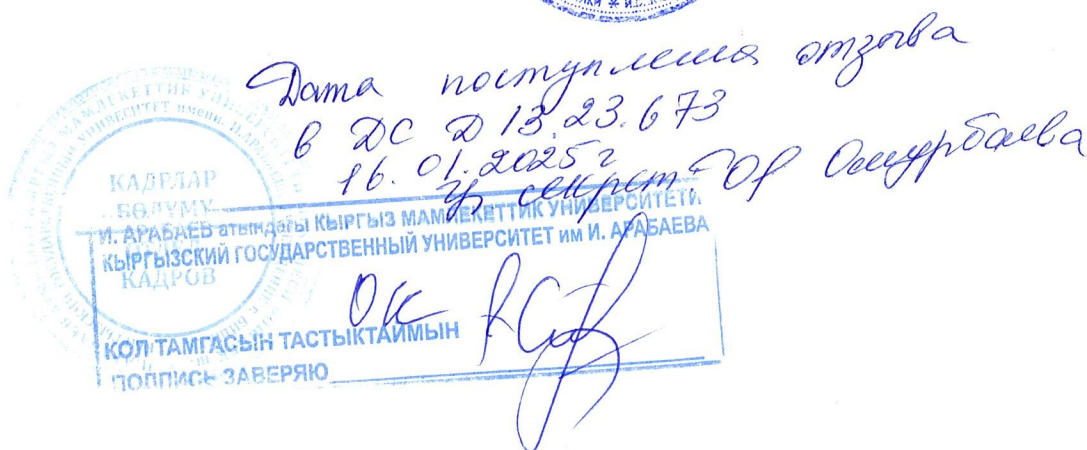 Дата поступления отзыва
в ДС Д 13.23.673
16.01.2025 г
уч секрет. Омурбаева
КАДРЛАР
БӨЛҮМҮ
КАДРОВ
И. АРАБАЕВ атындагы КЫРГЫЗ МАМЛЕКЕТТИК УНИВЕРСИТЕТИ
КЫРГЫЗСКИЙ ГОСУДАРСТВЕННЫЙ УНИВЕРСИТЕТ им И. АРАБАЕВА
ОК
КОЛ ТАМГАСЫН ТАСТЫКТАЙМЫН
ПОДПИСЬ ЗАВЕРЯЮ